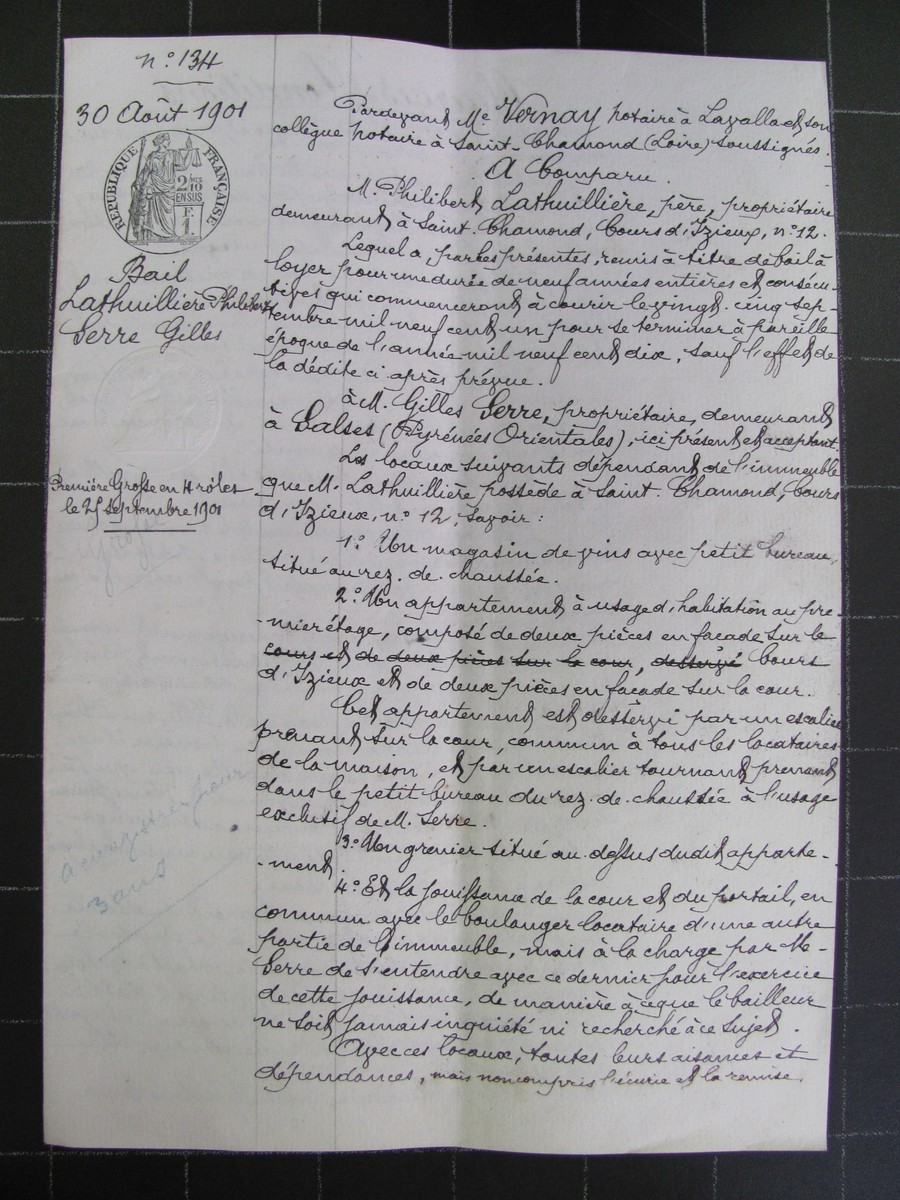 n° 134
30 Août 1901
RÉPUBLIQUE FRANÇAISE
2/10
EN SUS
F.
1.
Bail
Lathuillière Philibert
Serre Gilles
Première Grosse en 4 rôles
le 25 septembre 1901
Grosse
à enregistrer pour
3 ans
Pardevant Me Vernay notaire à Lavalla et son
collègue notaire à Saint-Chamond (Loire) soussignés.
A Comparu.
M. Philibert Lathuillière, père, propriétaire
demeurant à Saint-Chamond, Cours d'Izieux, n° 12.
Lequel a, par les présentes, remis à titre de bail à
loyer pour une durée de neuf années entières et consécu-
tives qui commenceront à courir le vingt-cinq sep-
tembre mil neuf cent un pour se terminer à pareille
époque de l'année mil neuf cent dix, sauf l'effet de
la dédite ci après prévue.
à M. Gilles Serre, propriétaire, demeurant
à Salses (Pyrénées Orientales), ici présent et acceptant
Les locaux suivants dépendant de l'immeuble
que M. Lathuillière possède à Saint-Chamond, Cours
d'Izieux, n° 12, savoir :
1° Un magasin de vins avec petit bureau,
situé au rez-de-chaussée.
2° Un appartement à usage d'habitation au pre-
-mier étage, composé de deux pièces en façade sur le
cours et de deux pièces sur la cour, desservi Cours
d'Izieux et de deux pièces en façade sur la cour.
Cet appartement est desservi par un escalier
prenant sur la cour, commun à tous les locataires
de la maison, et par un escalier tournant prenant
dans le petit bureau du rez-de-chaussée à l'usage
exclusif de M. Serre.
3° Un grenier situé au-dessus dudit apparte-
-ment.
4° Et la jouissance de la cour et du portail, en
commun avec le boulanger locataire d'une autre
partie de l'immeuble, mais à la charge par M.
Serre de s'entendre avec ce dernier pour l'exercice
de cette jouissance, de manière à ce que le bailleur
ne soit jamais inquiété ni recherché à ce sujet.
Avec ces locaux, toutes leurs aisances et
dépendances, mais non compris l'écurie et la remise.